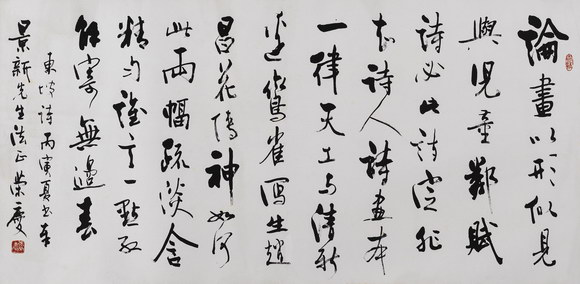 論畫以形似見
與兒童鄰賦
詩必此詩定非
知詩人詩畫本
一律天工与清新
邊鸞雀寫生趙
昌花傳神如何
此兩幅疏淡含
精勻誰言一點紅
解寄無邊春
東坡詩丙寅夏書奉
景新先生法正榮慶